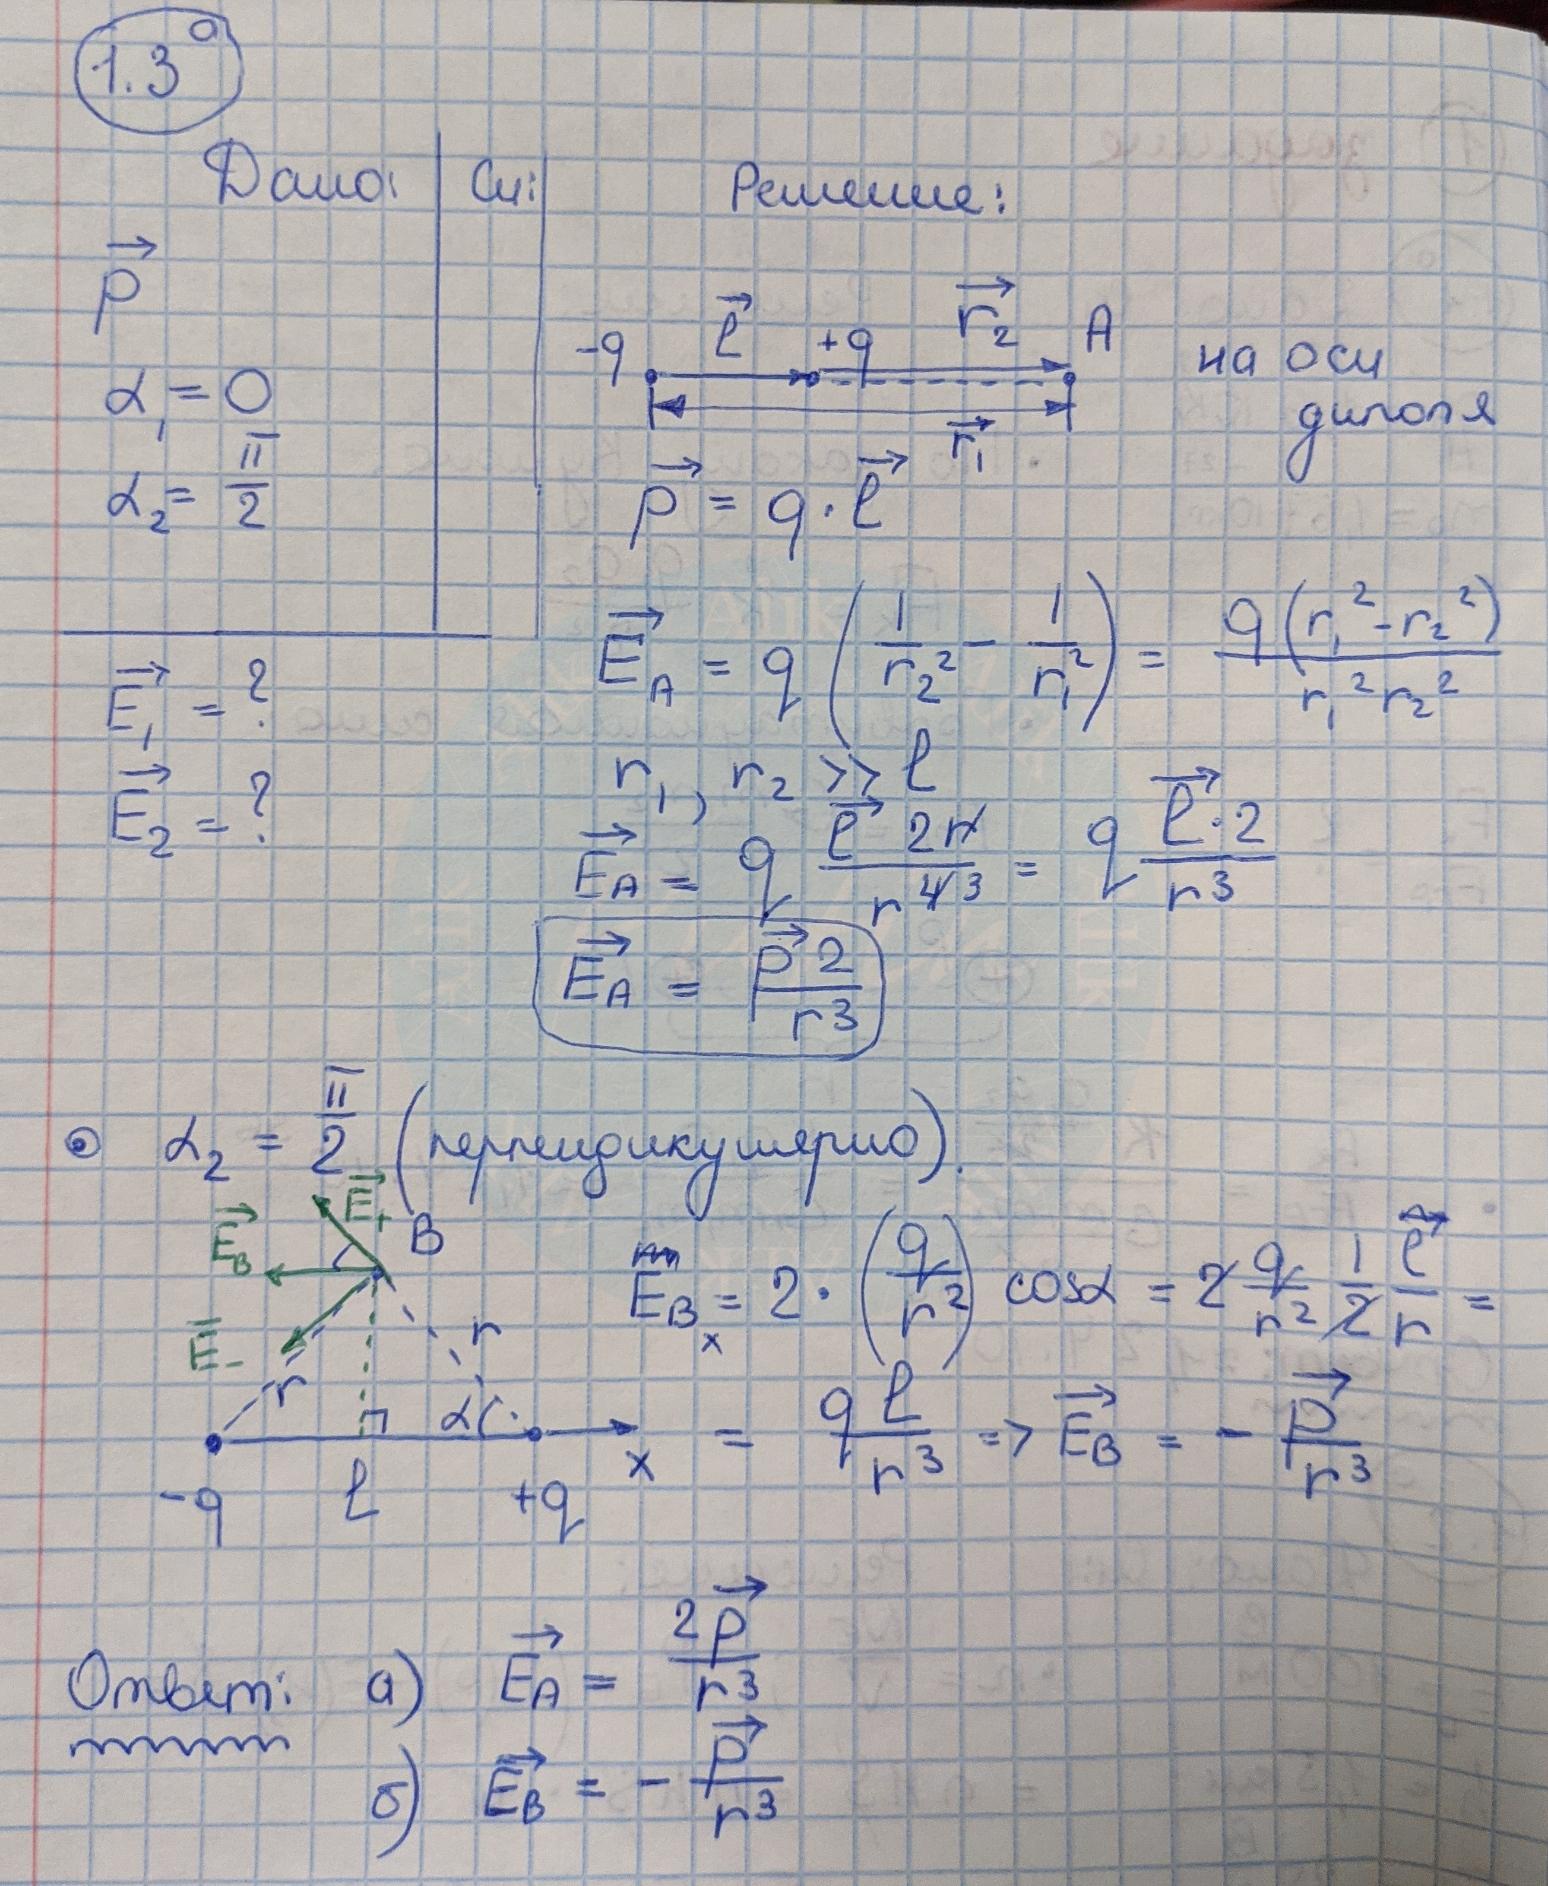 1.3ᵃ
Дано: Си: Решение:
p⃗
α₁ = 0
α₂ = π/2
E⃗₁ = ?
E⃗₂ = ?
-q l⃗ +q r⃗₂ A на оси
диполя
r⃗₁
p⃗ = q · l⃗
E⃗_A = q (1/r₂² - 1/r₁²) = q(r₁² - r₂²)/(r₁² r₂²)
r₁, r₂ >> l
E⃗_A = q (l⃗ 2r)/r⁴ ³ = q (l⃗ · 2)/r³
E⃗_A = p⃗ 2/r³
α₂ = π/2 (перпендикулярно).
E⃗₊
E⃗_B B
E⃗₋
r r
α
-q l +q x
E_Bx = 2 · (q/r²) cosα = 2 q/r² 1/2 l⃗/r =
= q l/r³ => E⃗_B = - p⃗/r³
Ответ: а) E⃗_A = 2p⃗/r³
б) E⃗_B = - p⃗/r³